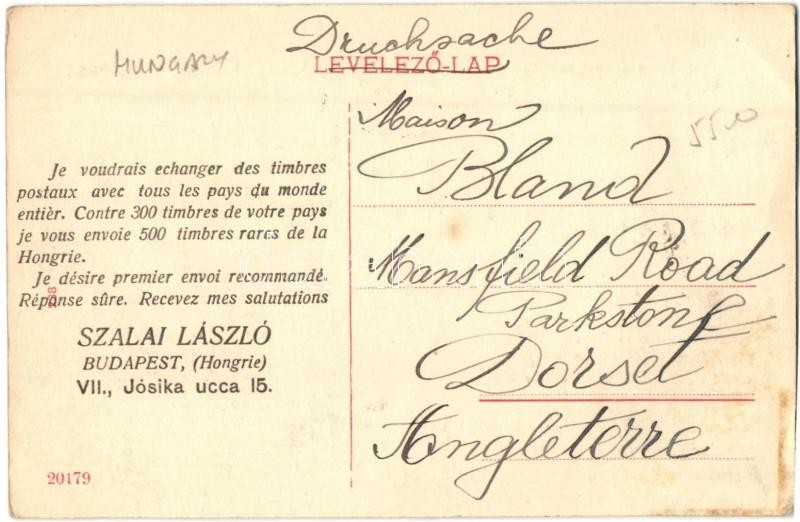 Druchsache
LEVELEZŐ-LAP
HUNGARY
Je voudrais echanger des timbres
postaux avec tous les pays du monde
entièr. Contre 300 timbres de votre pays
je vous envoie 500 timbres rares de la
Hongrie.
Je désire premier envoi recommandé.
Réponse sûre. Recevez mes salutations
SZALAI LÁSZLÓ
BUDAPEST, (Hongrie)
VII., Jósika ucca 15.
20179
Maison
Bland
Mansfield Road
Parkstone
Dorset
Angleterre